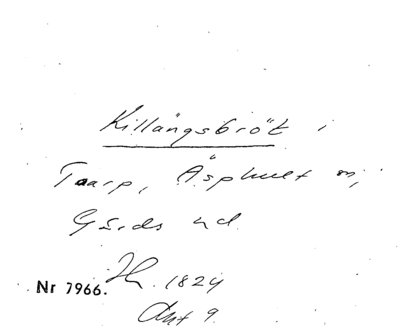 Killängsbröt i
Taarp, Äsphult m,
Gärds hd.
Nr 7966. 1824
Ant 9.